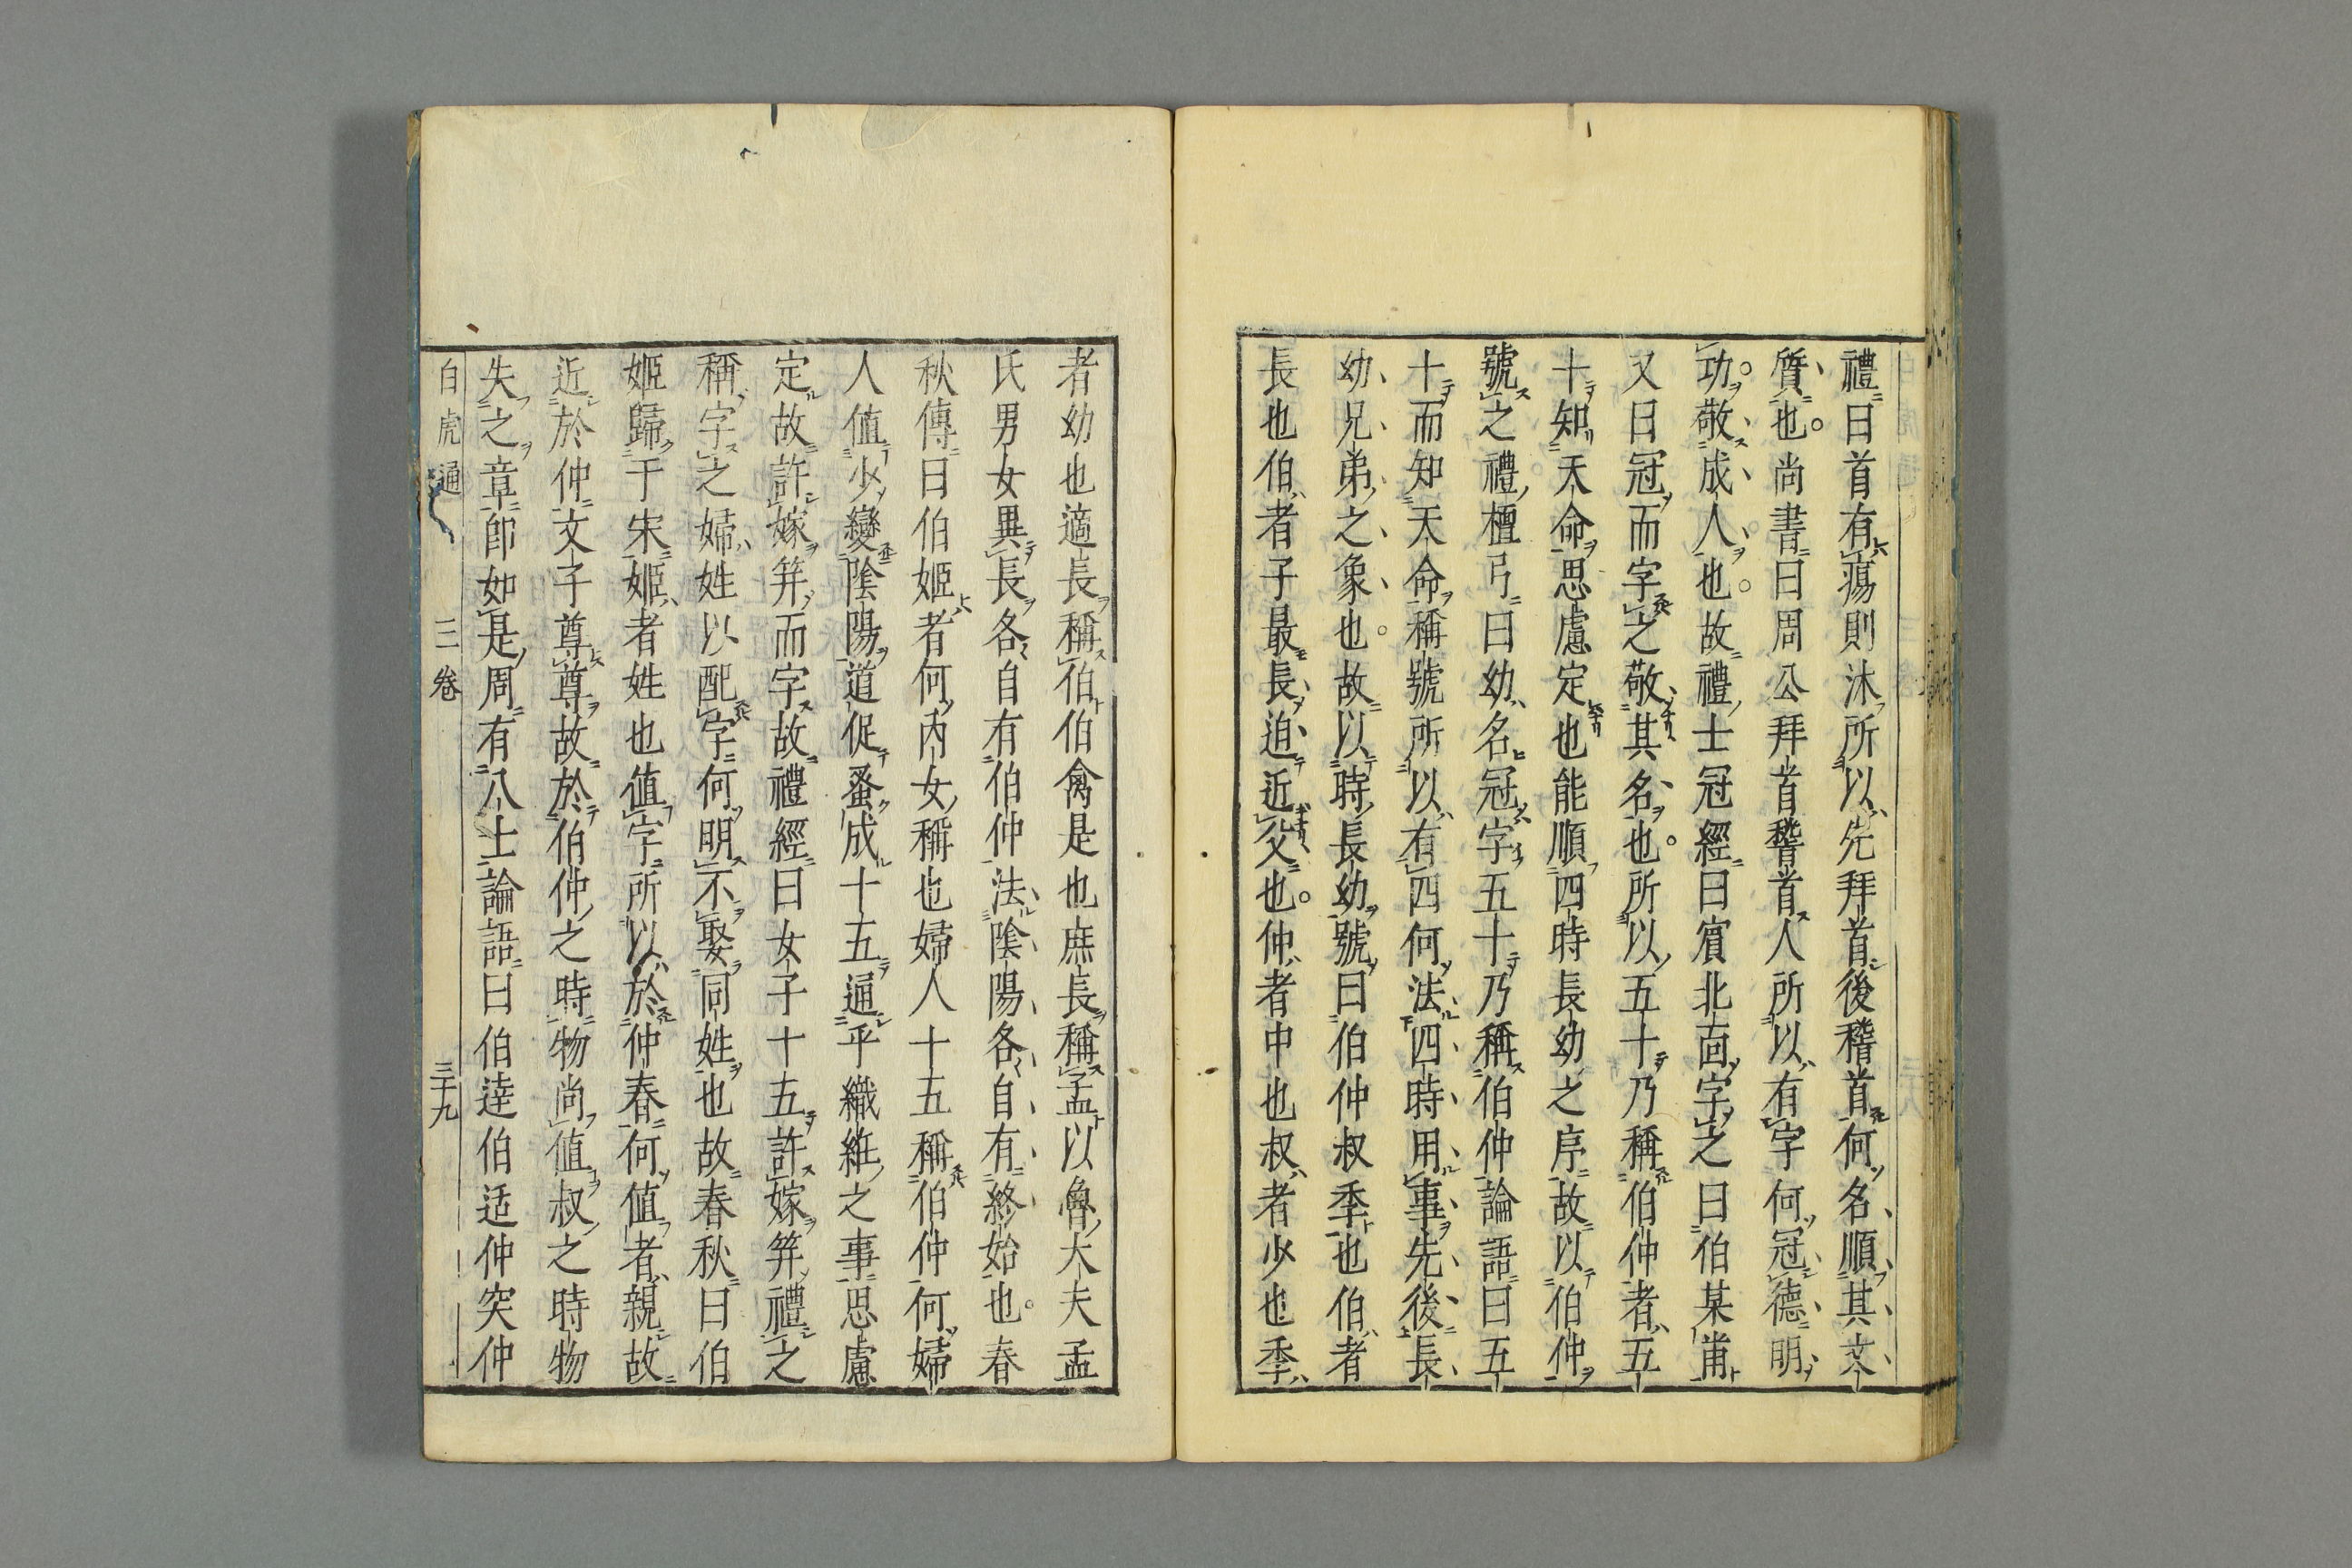 禮曰首有瘍則沐所以先拜首後稽首何名順其文
質也尚書曰周公拜首稽首人所以有字何冠德明
功敬成人也故禮士冠經曰賔北面字之曰伯某甫
又曰冠而字之敬其名也所以五十乃稱伯仲者五
十知天命思慮定也能順四時長幼之序故以伯仲
號之禮檀弓曰幼名冠字五十乃稱伯仲論語曰五
十而知天命稱號所以有四何法四時用事先後長
幼兄弟之象也故以時長幼號曰伯仲叔季也伯者
長也伯者子最長迫近父也仲者中也叔者少也季
者幼也適長稱伯伯禽是也庶長稱孟以魯大夫孟
氏男女異長各自有伯仲法陰陽各自有終始也春
秋傳曰伯姬者何內女稱也婦人十五稱伯仲何婦
人值少變陰陽道促蚤成十五通乎織維之事思慮
定故許嫁笄而字故禮經曰女子十五許嫁笄禮之
稱字之婦姓以配字何明不娶同姓也故春秋曰伯
姬歸于宋姬者姓也值字所以於仲春何值者親故
近於仲文子尊尊故於伯仲之時物尚值叔之時物
失之章卽如是周有八士論語曰伯逹伯适仲突仲
白虎通 三卷 三十九